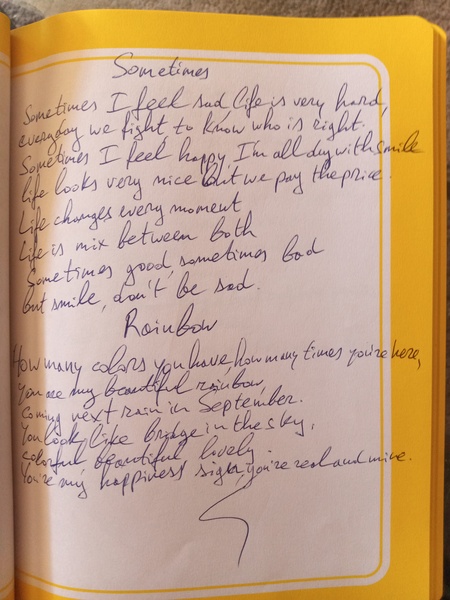 Sometimes
Sometimes I feel sad, life is very hard,
everyday we fight to know who is right.
Sometimes I feel happy, I'm all day with smile
life looks very nice but we pay the price.
Life changes every moment
Life is mix between both
Sometimes good, sometimes bad
but smile, don't be sad.
Rainbow
How many colors you have how many times you're here,
you are my beautiful rainbow,
coming next rain in September.
You look like bridge in the sky,
colorful, beautiful lovely.
You're my happiness sign, you're real and mine.